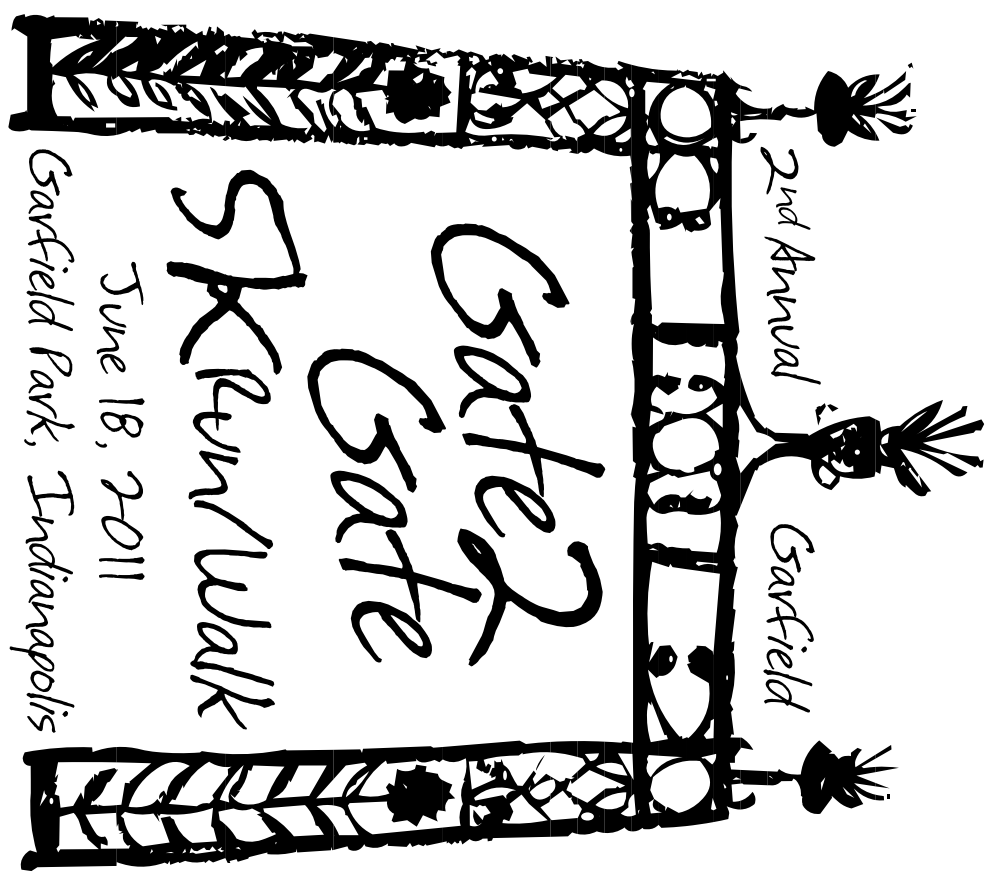 2nd Annual Garfield
Gate2
Gate
5K Run/Walk
June 18, 2011
Garfield Park, Indianapolis